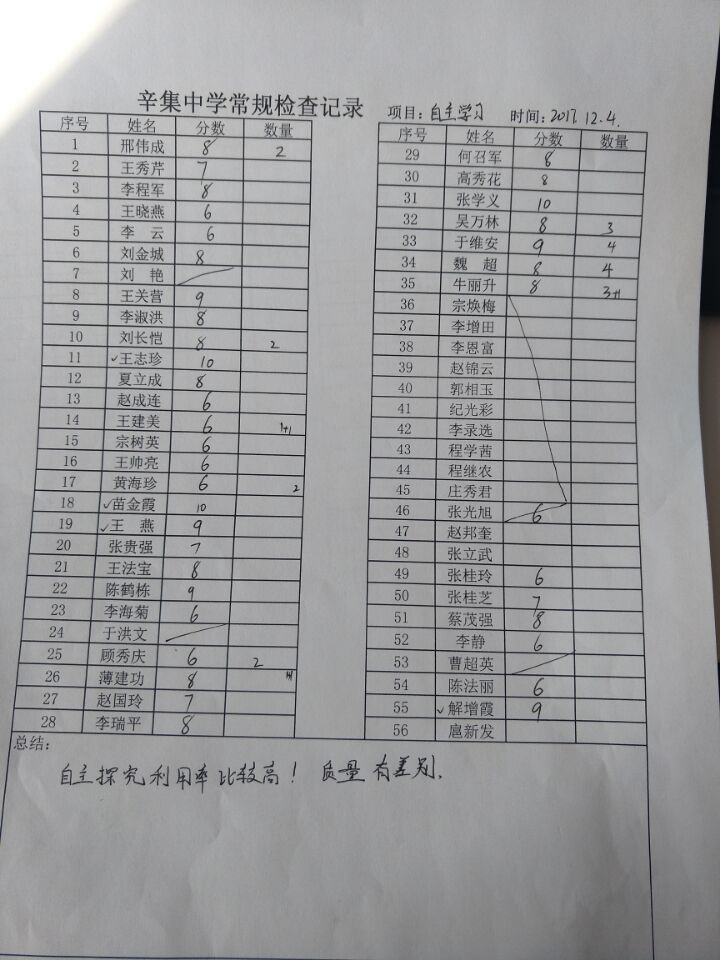 辛集中学常规检查记录 项目：自主学习 时间：2017.12.4.
序号 姓名 分数 数量
1 邢伟成 8 2
2 王秀芹 7
3 李程军 8
4 王晓燕 6
5 李 云 6
6 刘金城 8
7 刘 艳
8 王关营 9
9 李淑洪 8
10 刘长恺 8 2
11 ✓王志珍 10
12 夏立成 8
13 赵成连 6
14 王建美 6 1+1
15 宗树英 6
16 王帅亮 6
17 黄海珍 6 2
18 ✓苗金霞 10
19 ✓王 燕 9
20 张贵强 7
21 王法宝 8
22 陈鹤栋 9
23 李海菊 6
24 于洪文
25 顾秀庆 6 2
26 薄建功 8
27 赵国玲 7
28 李瑞平 8
序号 姓名 分数 数量
29 何召军 8
30 高秀花 8
31 张学义 10
32 吴万林 8 3
33 于维安 9 4
34 魏 超 8 4
35 牛丽升 8 3+1
36 宗焕梅
37 李增田
38 李恩富
39 赵锦云
40 郭相玉
41 纪光彩
42 李录选
43 程学茜
44 程继农
45 庄秀君
46 张光旭 6
47 赵邦奎
48 张立武
49 张桂玲 6
50 张桂芝 7
51 蔡茂强 8
52 李静 6
53 曹超英
54 陈法丽 6
55 ✓解增霞 9
56 扈新发
总结：
自主探究利用率比较高！ 质量有差别.